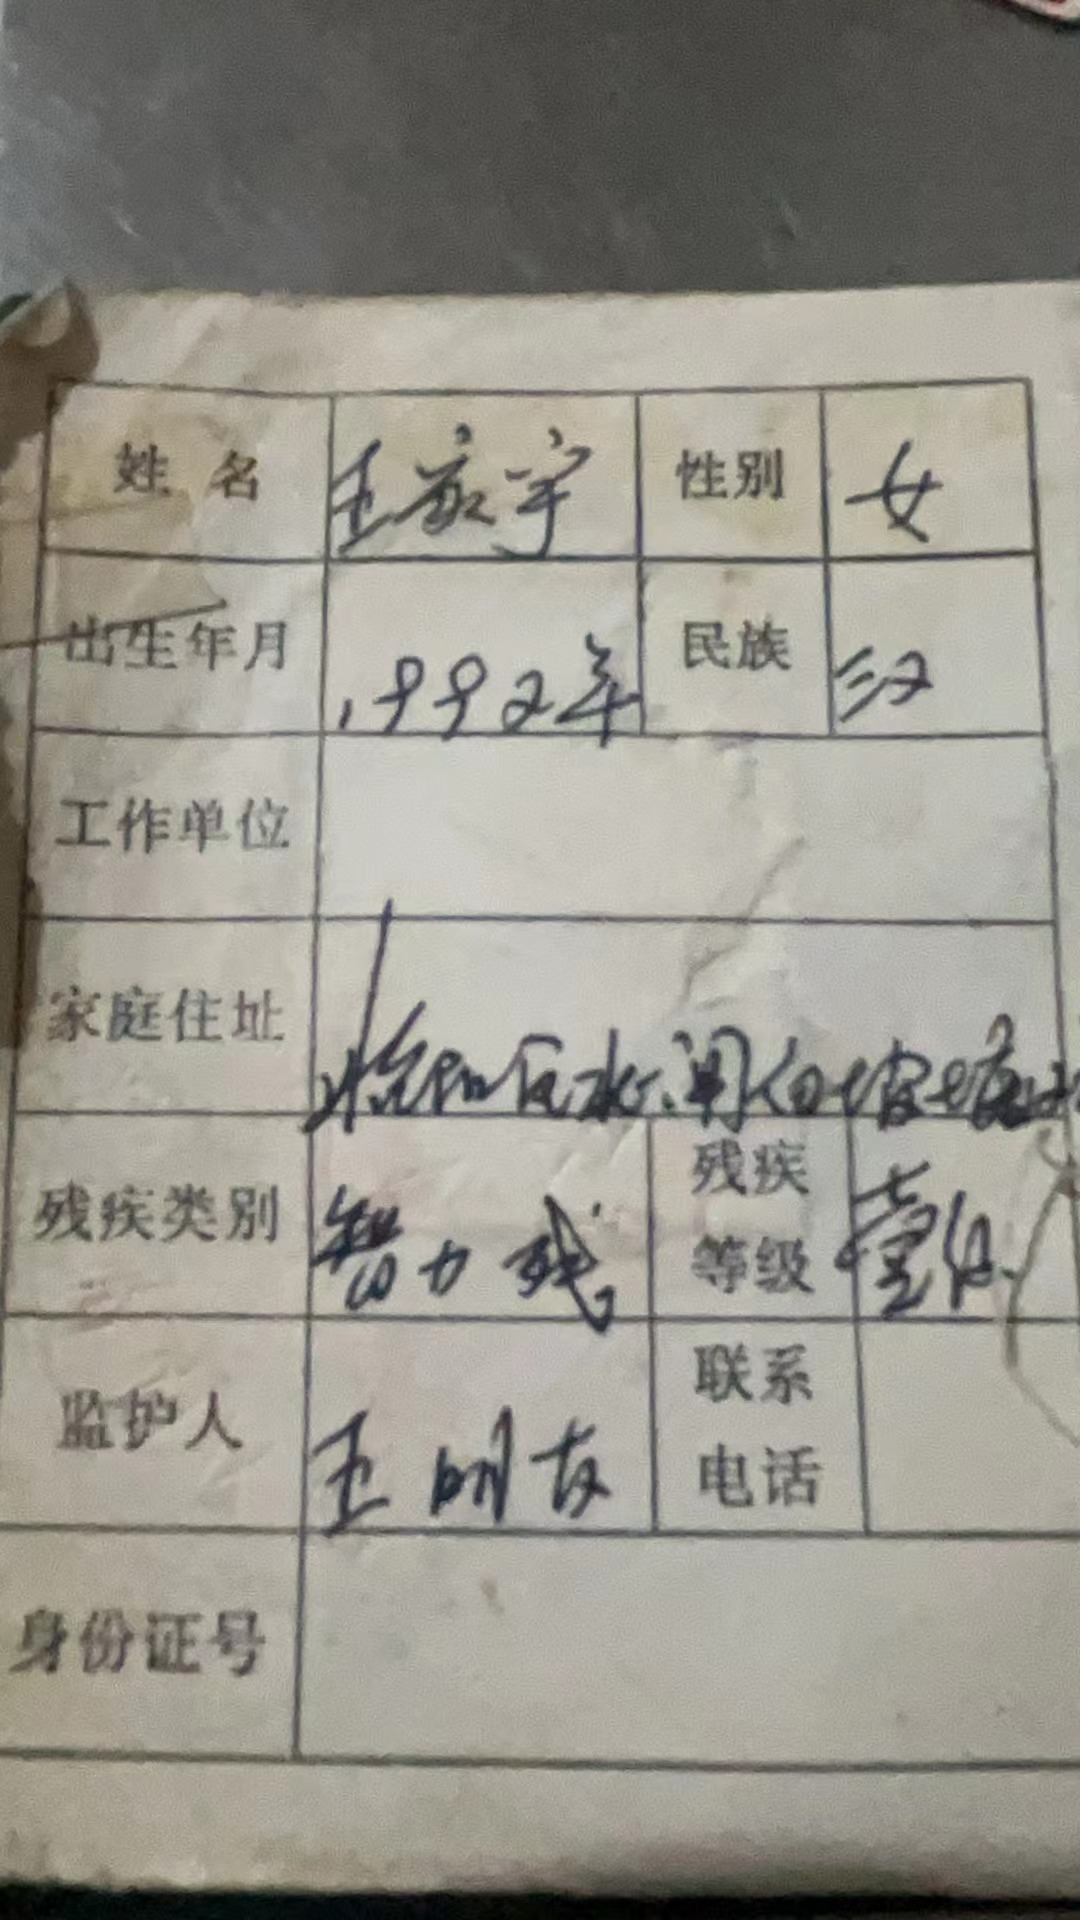 姓 名 王 宇 性别 女
出生年月 1992年 民族 汉
工作单位
家庭住址
残疾类别 智力残 残疾等级 壹级
监护人 王明友 联系电话
身份证号